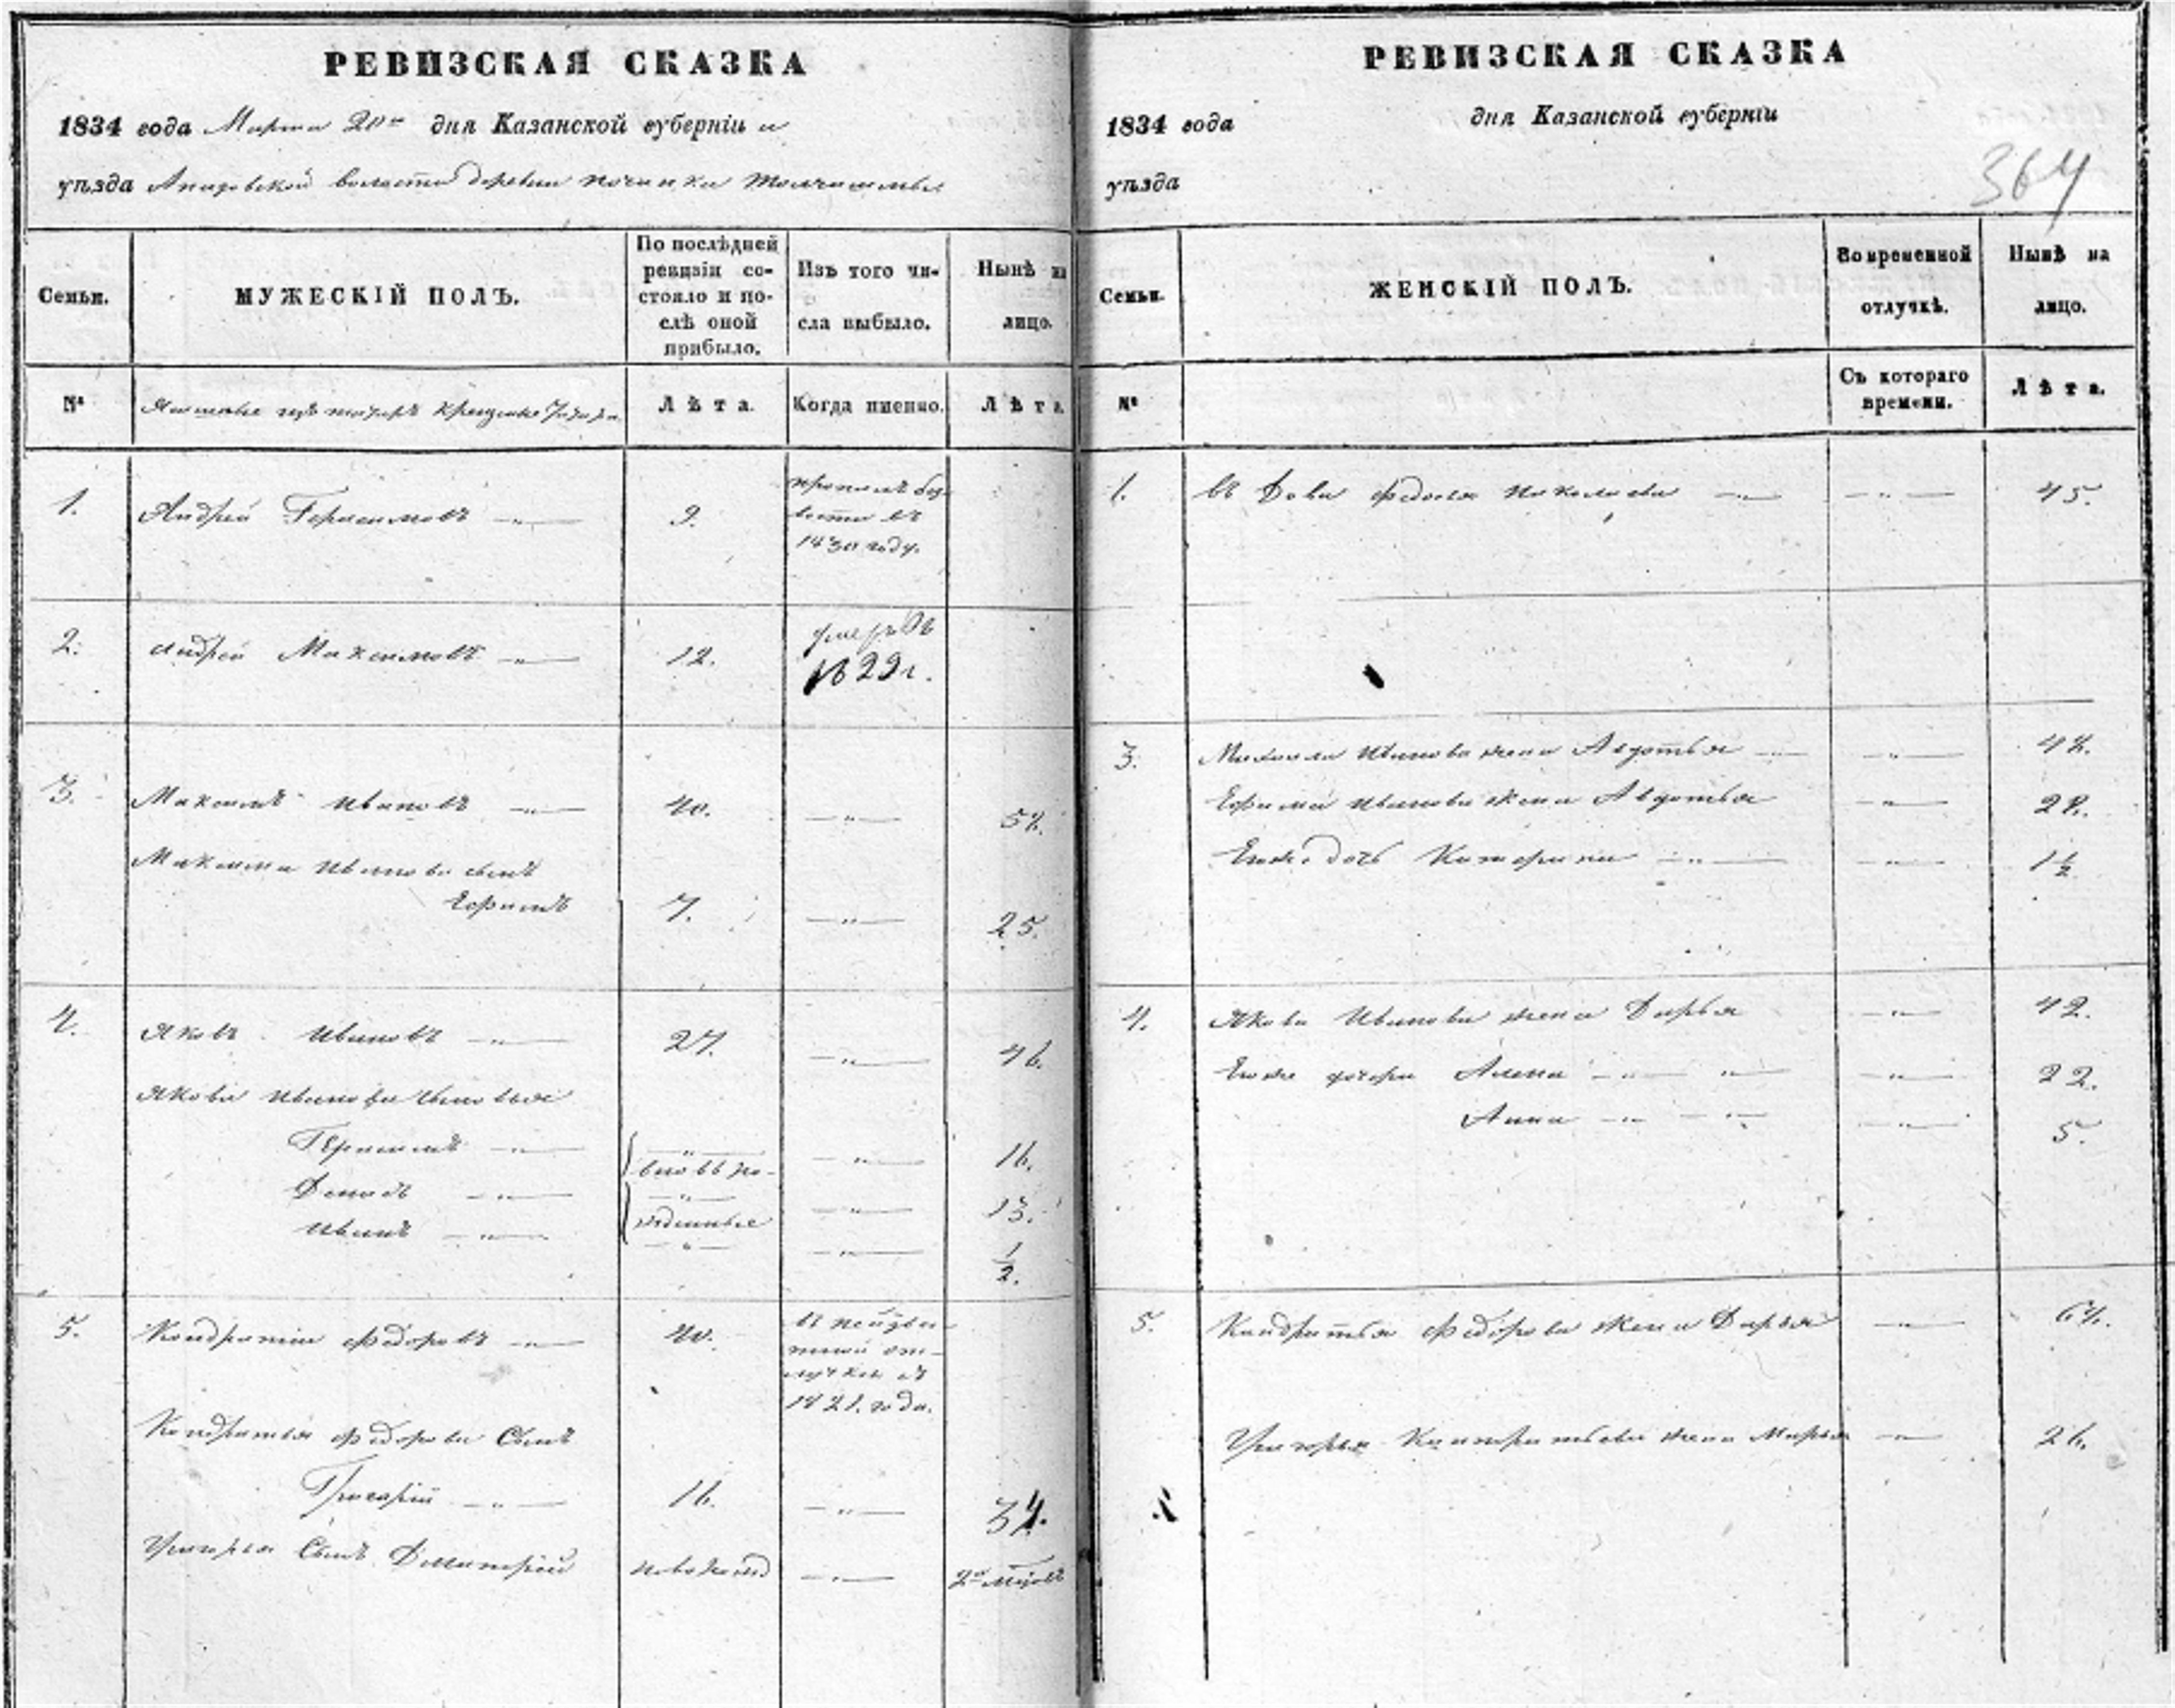 РЕВИЗСКАЯ СКАЗКА
1834 года Марта 20го дня Казанской губерніи и
уѣзда волости деревни починка
Семьи.
МУЖЕСКІЙ ПОЛЪ.
По послѣдней
ревизіи со-
стояло и по-
слѣ оной
прибыло.
Изъ того чи-
сла выбыло.
Нынѣ на
лицо.
№
изъ татаръ крещеные
Лѣта.
Когда именно.
Лѣта
1.
Андрей Герасимовъ
9.
пропалъ без
вести въ
1830 году.
2.
Андрей Максимовъ
12.
умеръ въ
1829 г.
3.
Максимъ Ивановъ
40.
58.
Максима Иванова сынъ
Ефимъ
7.
25.
4.
Яковъ Ивановъ
27.
46.
Якова Иванова сыновья
Герасимъ
вновь ро-
16.
Демидъ
жденные
13.
Иванъ
1/2.
5.
Кондратій Федоровъ
40.
въ неизвѣ
стной от-
лучке съ
1821. года.
Кондратья Федорова Сынъ
Григорій
16.
34.
Григорья Сынъ Дмитрій
новорожд
2
РЕВИЗСКАЯ СКАЗКА
1834 года
дня Казанской губерніи
уѣзда
364
Семьи.
ЖЕНСКІЙ ПОЛЪ.
Во временной
отлучкѣ.
Нынѣ на
лицо.
№
Съ котораго
времени.
Лѣта.
1.
вдова Федосья Николаева
45.
3.
Иванова жена Авдотья
48.
Ефима Иванова жена Авдотья
28.
Ево же дочь Катерина
1 1/2
4.
Якова Иванова жена Дарья
42.
Ево же дочери Алена
22.
Анна
5.
5.
Кондратья Федорова жена Дарья
Григорья Кондратьева жена Марья
26.